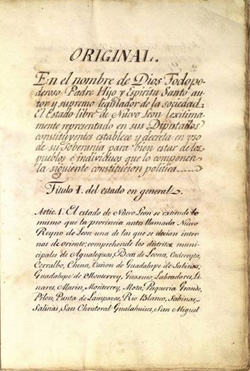 ORIGINAL.
En el nombre de Dios Todopo-
deroso, Padre Hijo y Espiritu Santo au-
tor y supremo legislador de la sociedad.
El Estado libre de Nuevo Leon lexitima-
mente representado en sus Diputados
constituyentes establece y decreta en uso
de su Soberania para bien estar de los
pueblos é individuos que lo componen
la siguiente constitucion politica
Titulo I. del estado en general.
Artic. 1. El estado de Nuevo Leon se extiende lo
mismo que la provincia antes llamada Nuevo
Reyno de Leon una de las que se decian inter-
nas de oriente; comprehende los distritos muni-
cipales de Agualeguas, Boca de Leones, Cadereyta,
Cerralvo, China, Cañon de Guadalupe de Salinas,
Guadalupe de Monterrey, Guajuco, Labradores, Li-
nares, Marin, Monterrey, Mota, Pesqueria Grande,
Pilon, Punta de Lampazos, Rio Blanco, Sabinas,
Salinas, San Cristoval Gualahuises, San Miguel